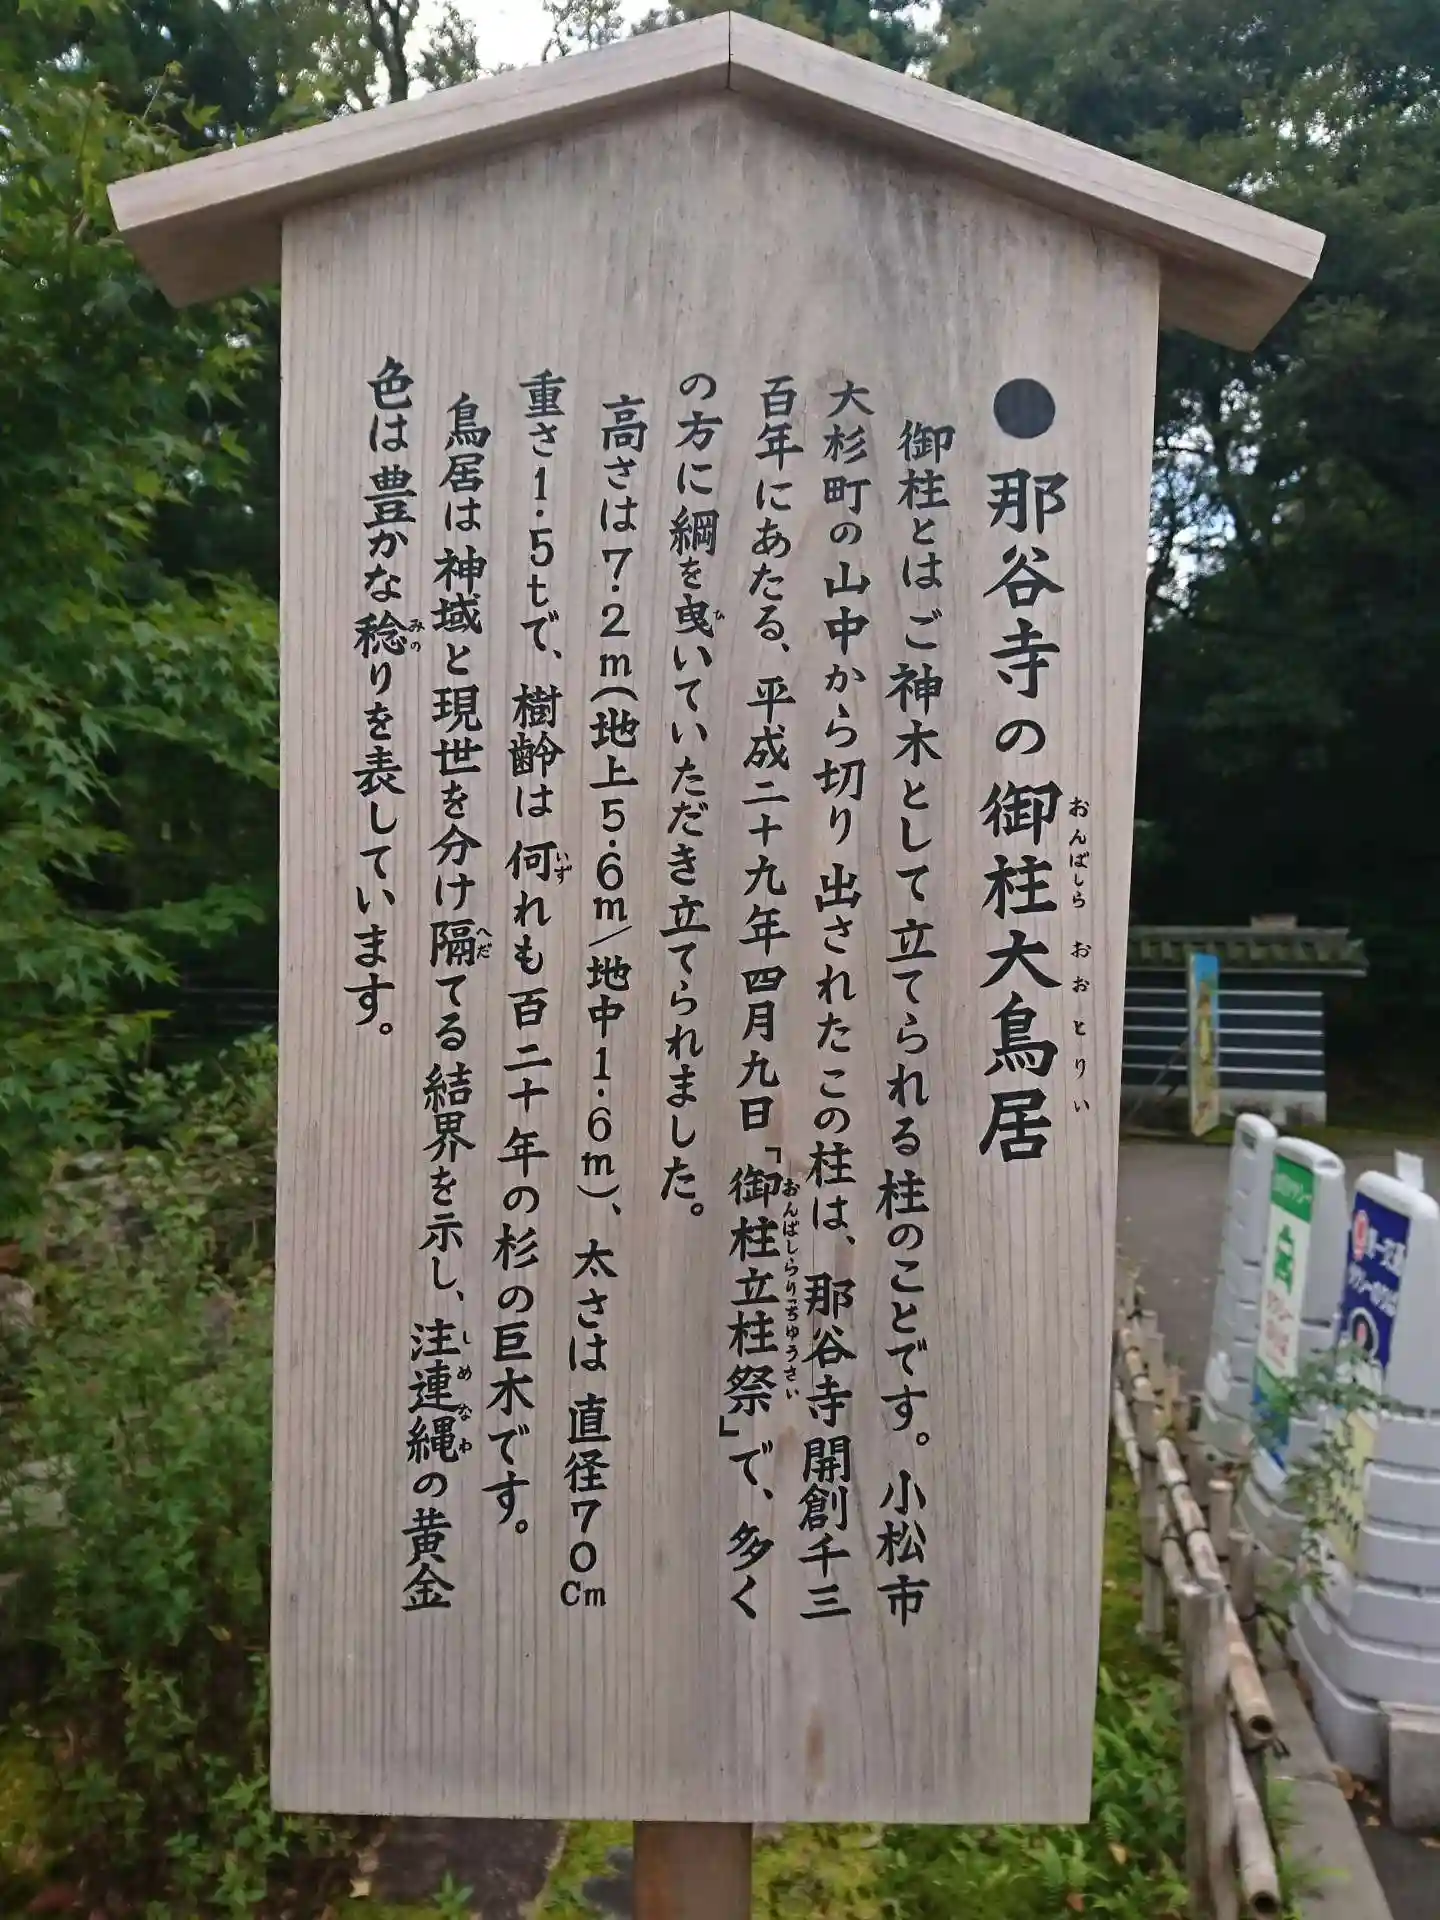 ●那谷寺の御柱大鳥居
おんばしら おおとりい
御柱とはご神木として立てられる柱のことです。小松市
大杉町の山中から切り出されたこの柱は、那谷寺開創千三
百年にあたる、平成二十九年四月九日「御柱立柱祭」で、多く
おんばしらりっちゅうさい
の方に綱を曳いていただき立てられました。
ひ
高さは7.2m(地上5.6m/地中1.6m)、太さは直径70cm
重さ1.5tで、樹齢は何れも百二十年の杉の巨木です。
いず
鳥居は神域と現世を分け隔てる結界を示し、注連縄の黄金
へだ
しめなわ
色は豊かな稔りを表しています。
みの